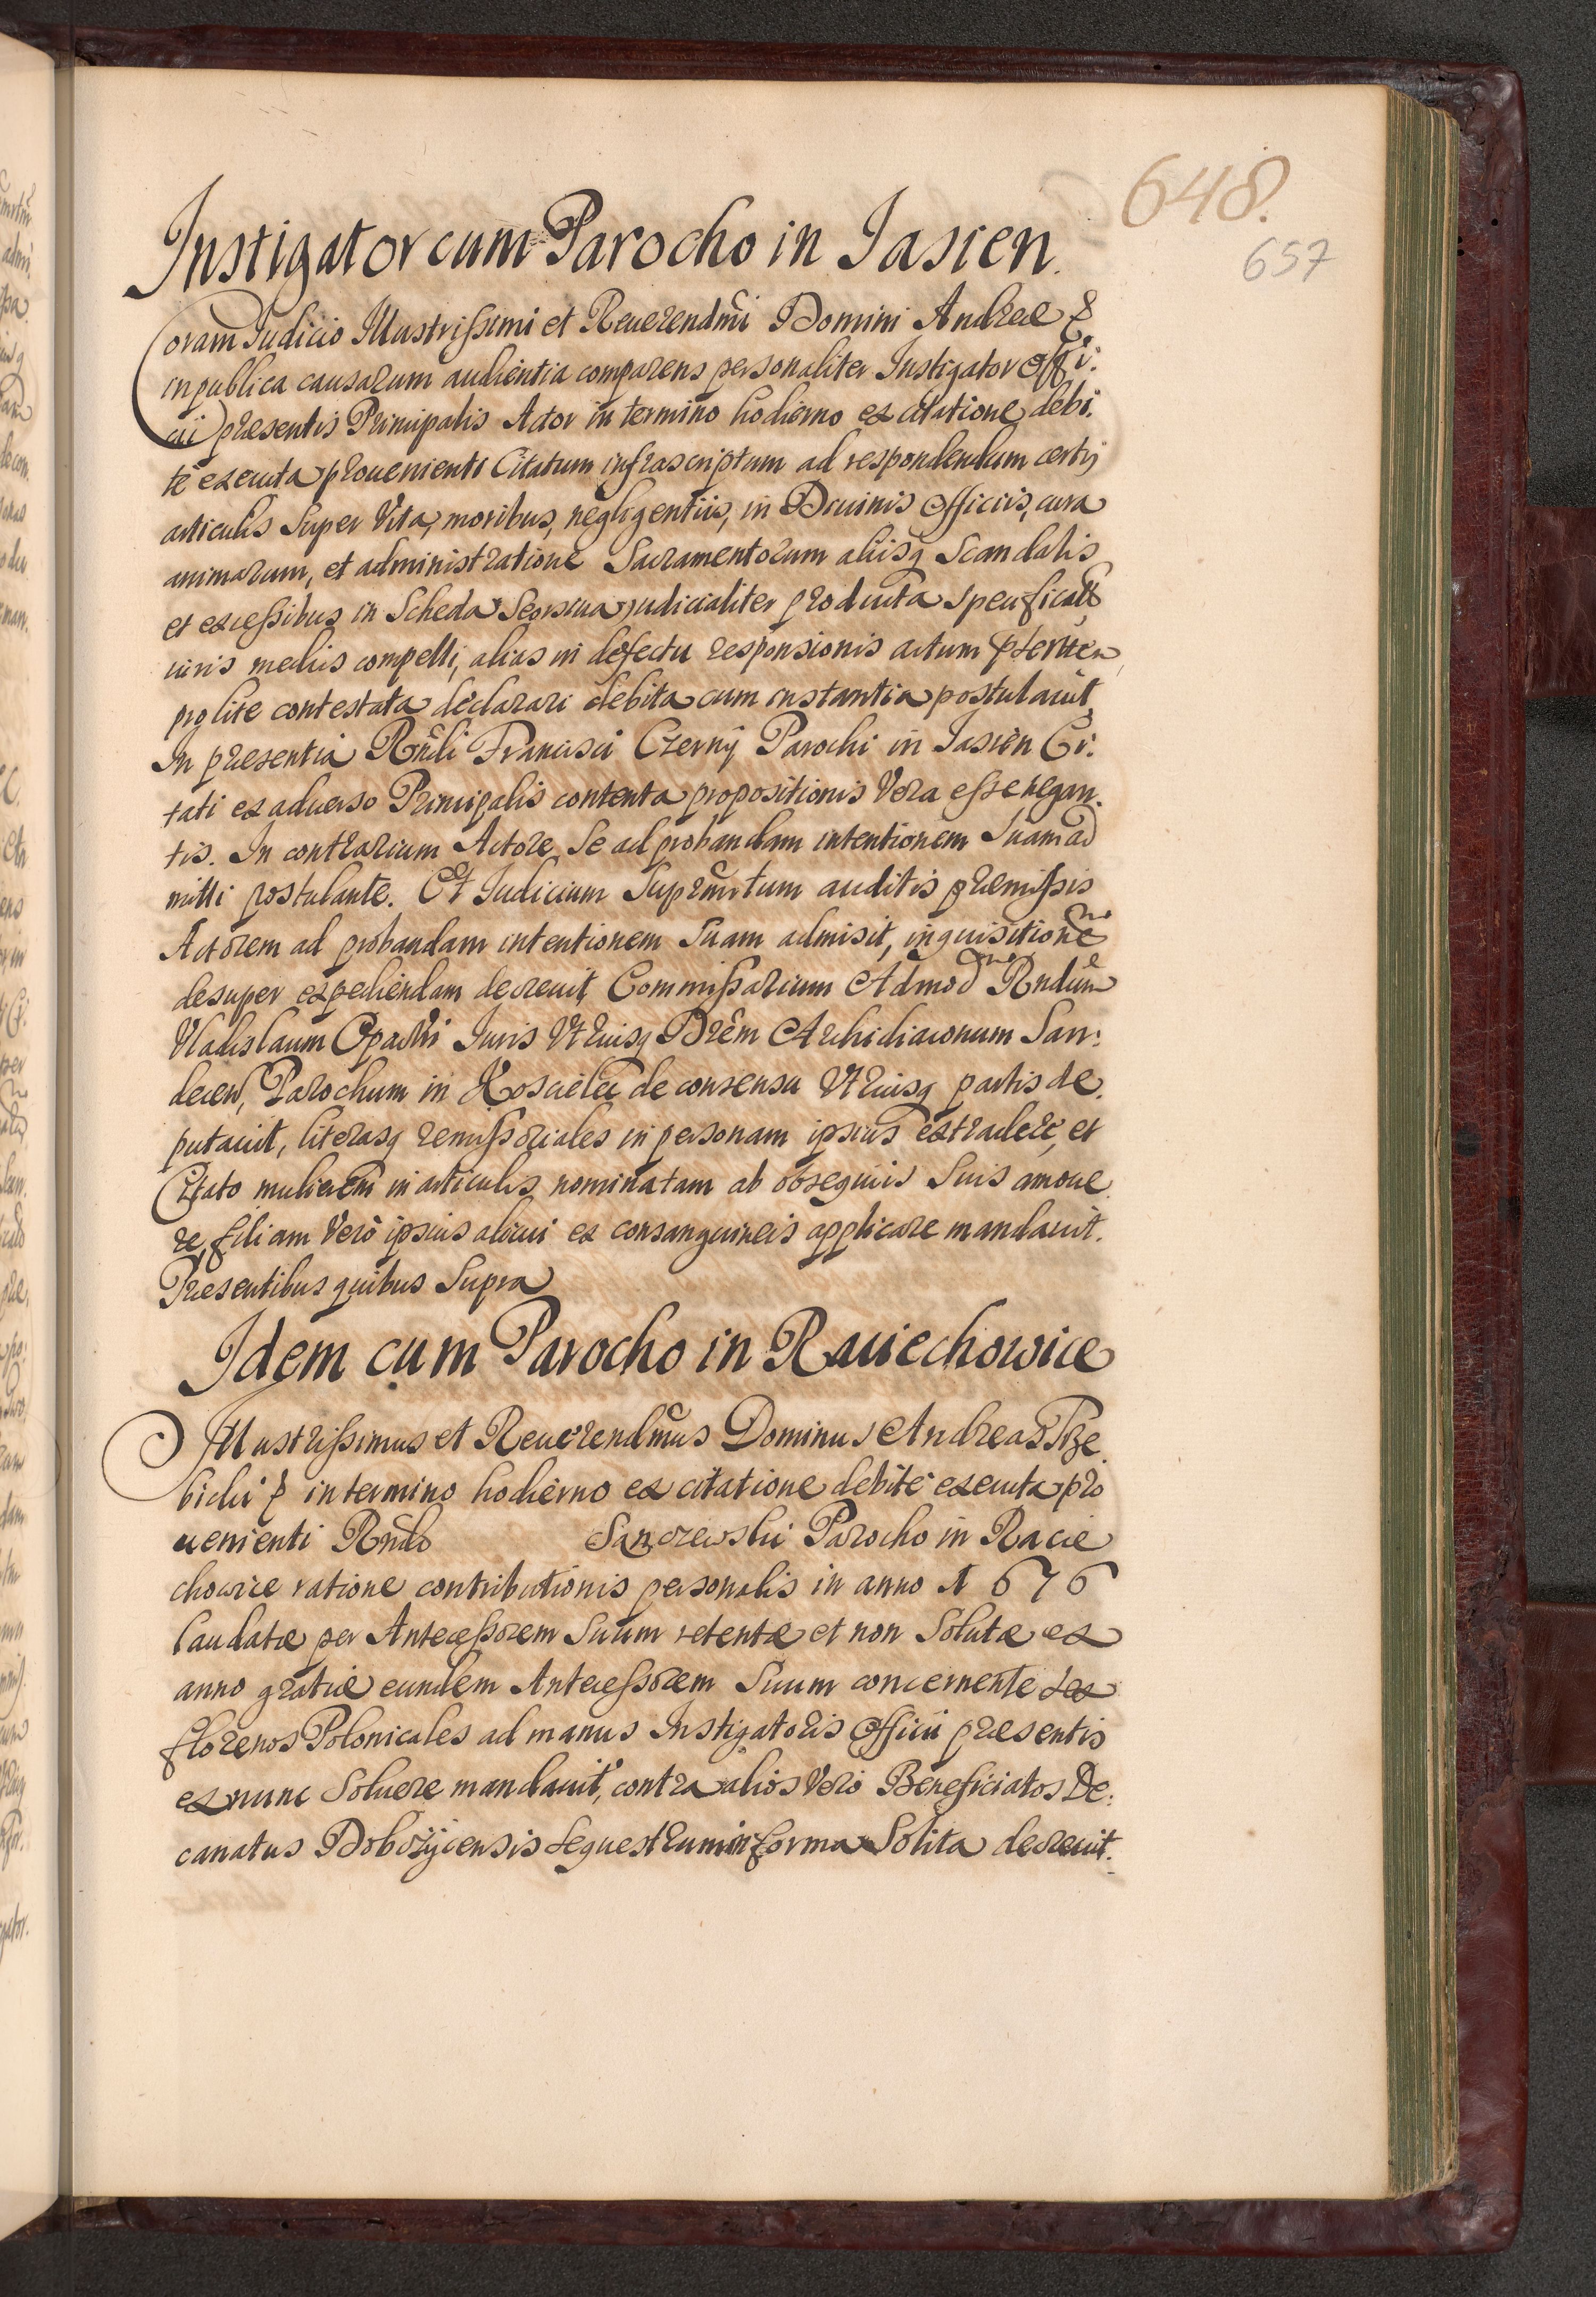 648.
657
Instigator cum Parocho in Jasien.
Coram Judicio Illustrissimi et Reuerendm̃i Domini Andreae &
in publica causarum audientia comparens personaliter Instigator Offi:
cii praesentis Principalis Actor in termino hodierno ex citatione debi:
te executa prouenienti Citatum infrascriptum ad respondendum certis
articulis Super Vita, moribus, negligentiis, in Diuinis Officiis, cura
animarum, et administratione Sacramentorum aliisq Scandalis
et excessibus in Scheda Seorsiua judicialiter producta specificatis
iuris mediis compelli, alias in defectu responsionis actum
pro lite contestata declarari debita cum instantia postulauit.
In praesentia Rñdi Francisci Czerny Parochi in Jasien Ci:
tati ex aduerso Principalis contenta propositionis Vera esse negan:
tis. In contrarium Actore Se ad probandam intentionem Suam ad
mitti postulante. Et Judicium Suprãntum auditis praemissis
Actorem ad probandam intentionem Suam admisit, inquisitionẽ
desuper expediendam decreuit, Commissarium Admod Rndum
Vladislaum Opacki Juris Vtriusq Drẽm Archidiaconum San:
decen, Parochum in Koscielec de consensu Vtriusq partis de
putauit, literasq remissoriales in personam ipsius extradere, et
Citato mulierem in articulis nominatam ab obsequiis Suis amoue
re, filiam Vero ipsius alicui ex consanguineis applicare mandauit.
Praesentibus quibus Supra
Idem cum Parocho in Raciechowice
Illustrissimus et Reuerendm̃us Dominus Andreas Trze
bicki & in termino hodierno ex citatione debite executa pro
uenienti Rñdo Sanczewski Parocho in Racie
chowice ratione contributionis personalis in anno 1676
laudatae per Antecessorem Suum retentae et non Solutae ex
anno gratiae eundem Antecessorem Suum concernente Sex
florenos Polonicales ad manus Instigatoris Officii praesentis
ex nunc Soluere mandauit, contra alios Vero Beneficiatos De:
canatus Dobczycensis Sequestrum in forma Solita decreuit.